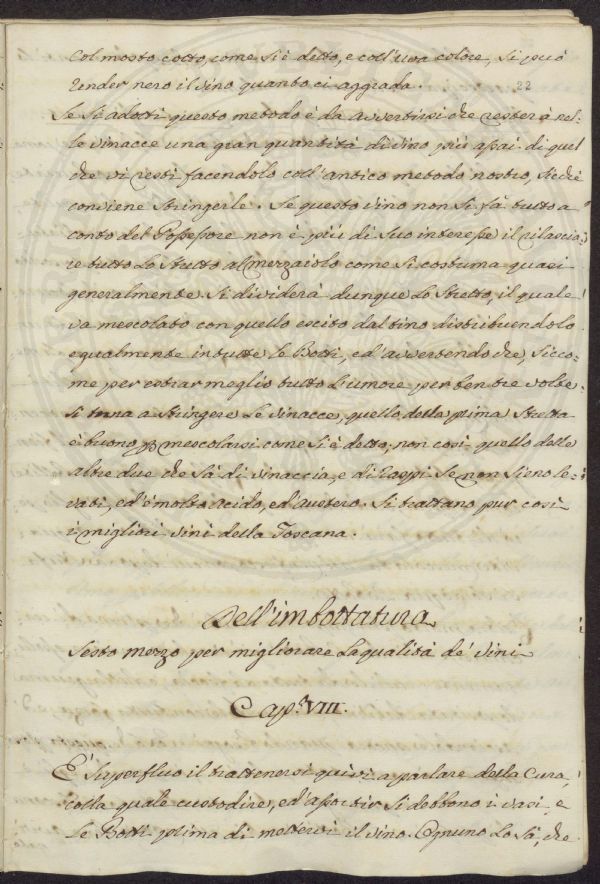 Col mosto cotto, come si è detto, e coll'uva colore, si può
render nero il vino quanto ci aggrada.
22
Se si adotti questo metodo è da avvertirsi che resterà nel-
le vinacce una gran quantità di vino più assai di quel
che vi resti facendolo coll'antico metodo nostro, sicchè
conviene stringerle. Se questo vino non si fà tutto a
conto del Possessore non è più di suo interesse il rilascia-
re tutto lo stretto al mezzaiolo come si costuma quasi
generalmente. Si dividerà dunque lo stretto, il quale
va mescolato con quello escito dal tino distribuendolo
egualmente in tutte le Botti, ed avvertendo che, sicco-
me per estrar meglio tutto l'umore per ben tre volte
si torna a stringere le vinacce, quello della prima stretta
è buono p mescolarsi come si è detto, non così quello delle
altre due che sà di vinaccia, e di raspi se non sieno le-
vati, ed è molto acido, ed austero. Si trattano pur così
i migliori vini della Toscana.
Dell'imbottatura
Sesto mezzo per migliorare la qualità de' vini
Cap.º VIII.
È superfluo il trattenersi quivi a parlare della cura,
colla quale custodire, ed assortir si debbono i vasi, e
le Botti prima di mettervi il vino. Ognuno lo sà, che